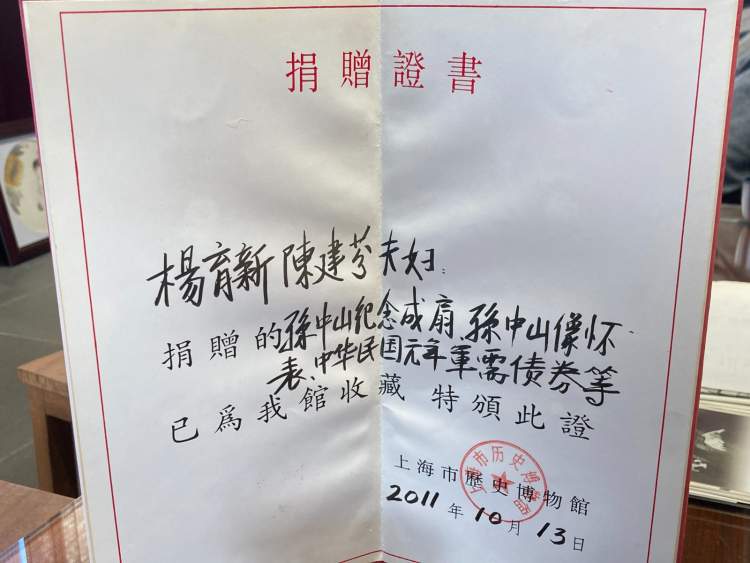 捐贈證書
楊育新 陳建芬夫妇:
捐贈的孫中山纪念成扇、孫中山像怀
表、中华民国元年軍需债券等
已爲我館收藏 特頒此證
上海市歷史博物館
上海市历史博物馆
2011年10月13日